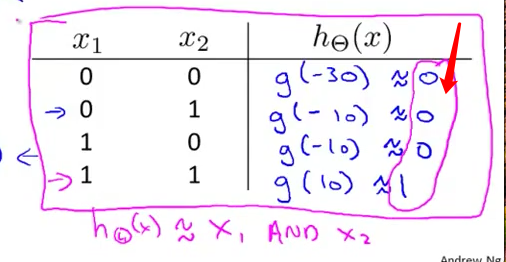 x₁ x₂ h_Θ(x)
0 0 g(-30) ≈ 0
→ 0 1 g(-10) ≈ 0
1 0 g(-10) ≈ 0
→ 1 1 g(10) ≈ 1
h_Θ(x) ≈ x₁ AND x₂
Andrew Ng